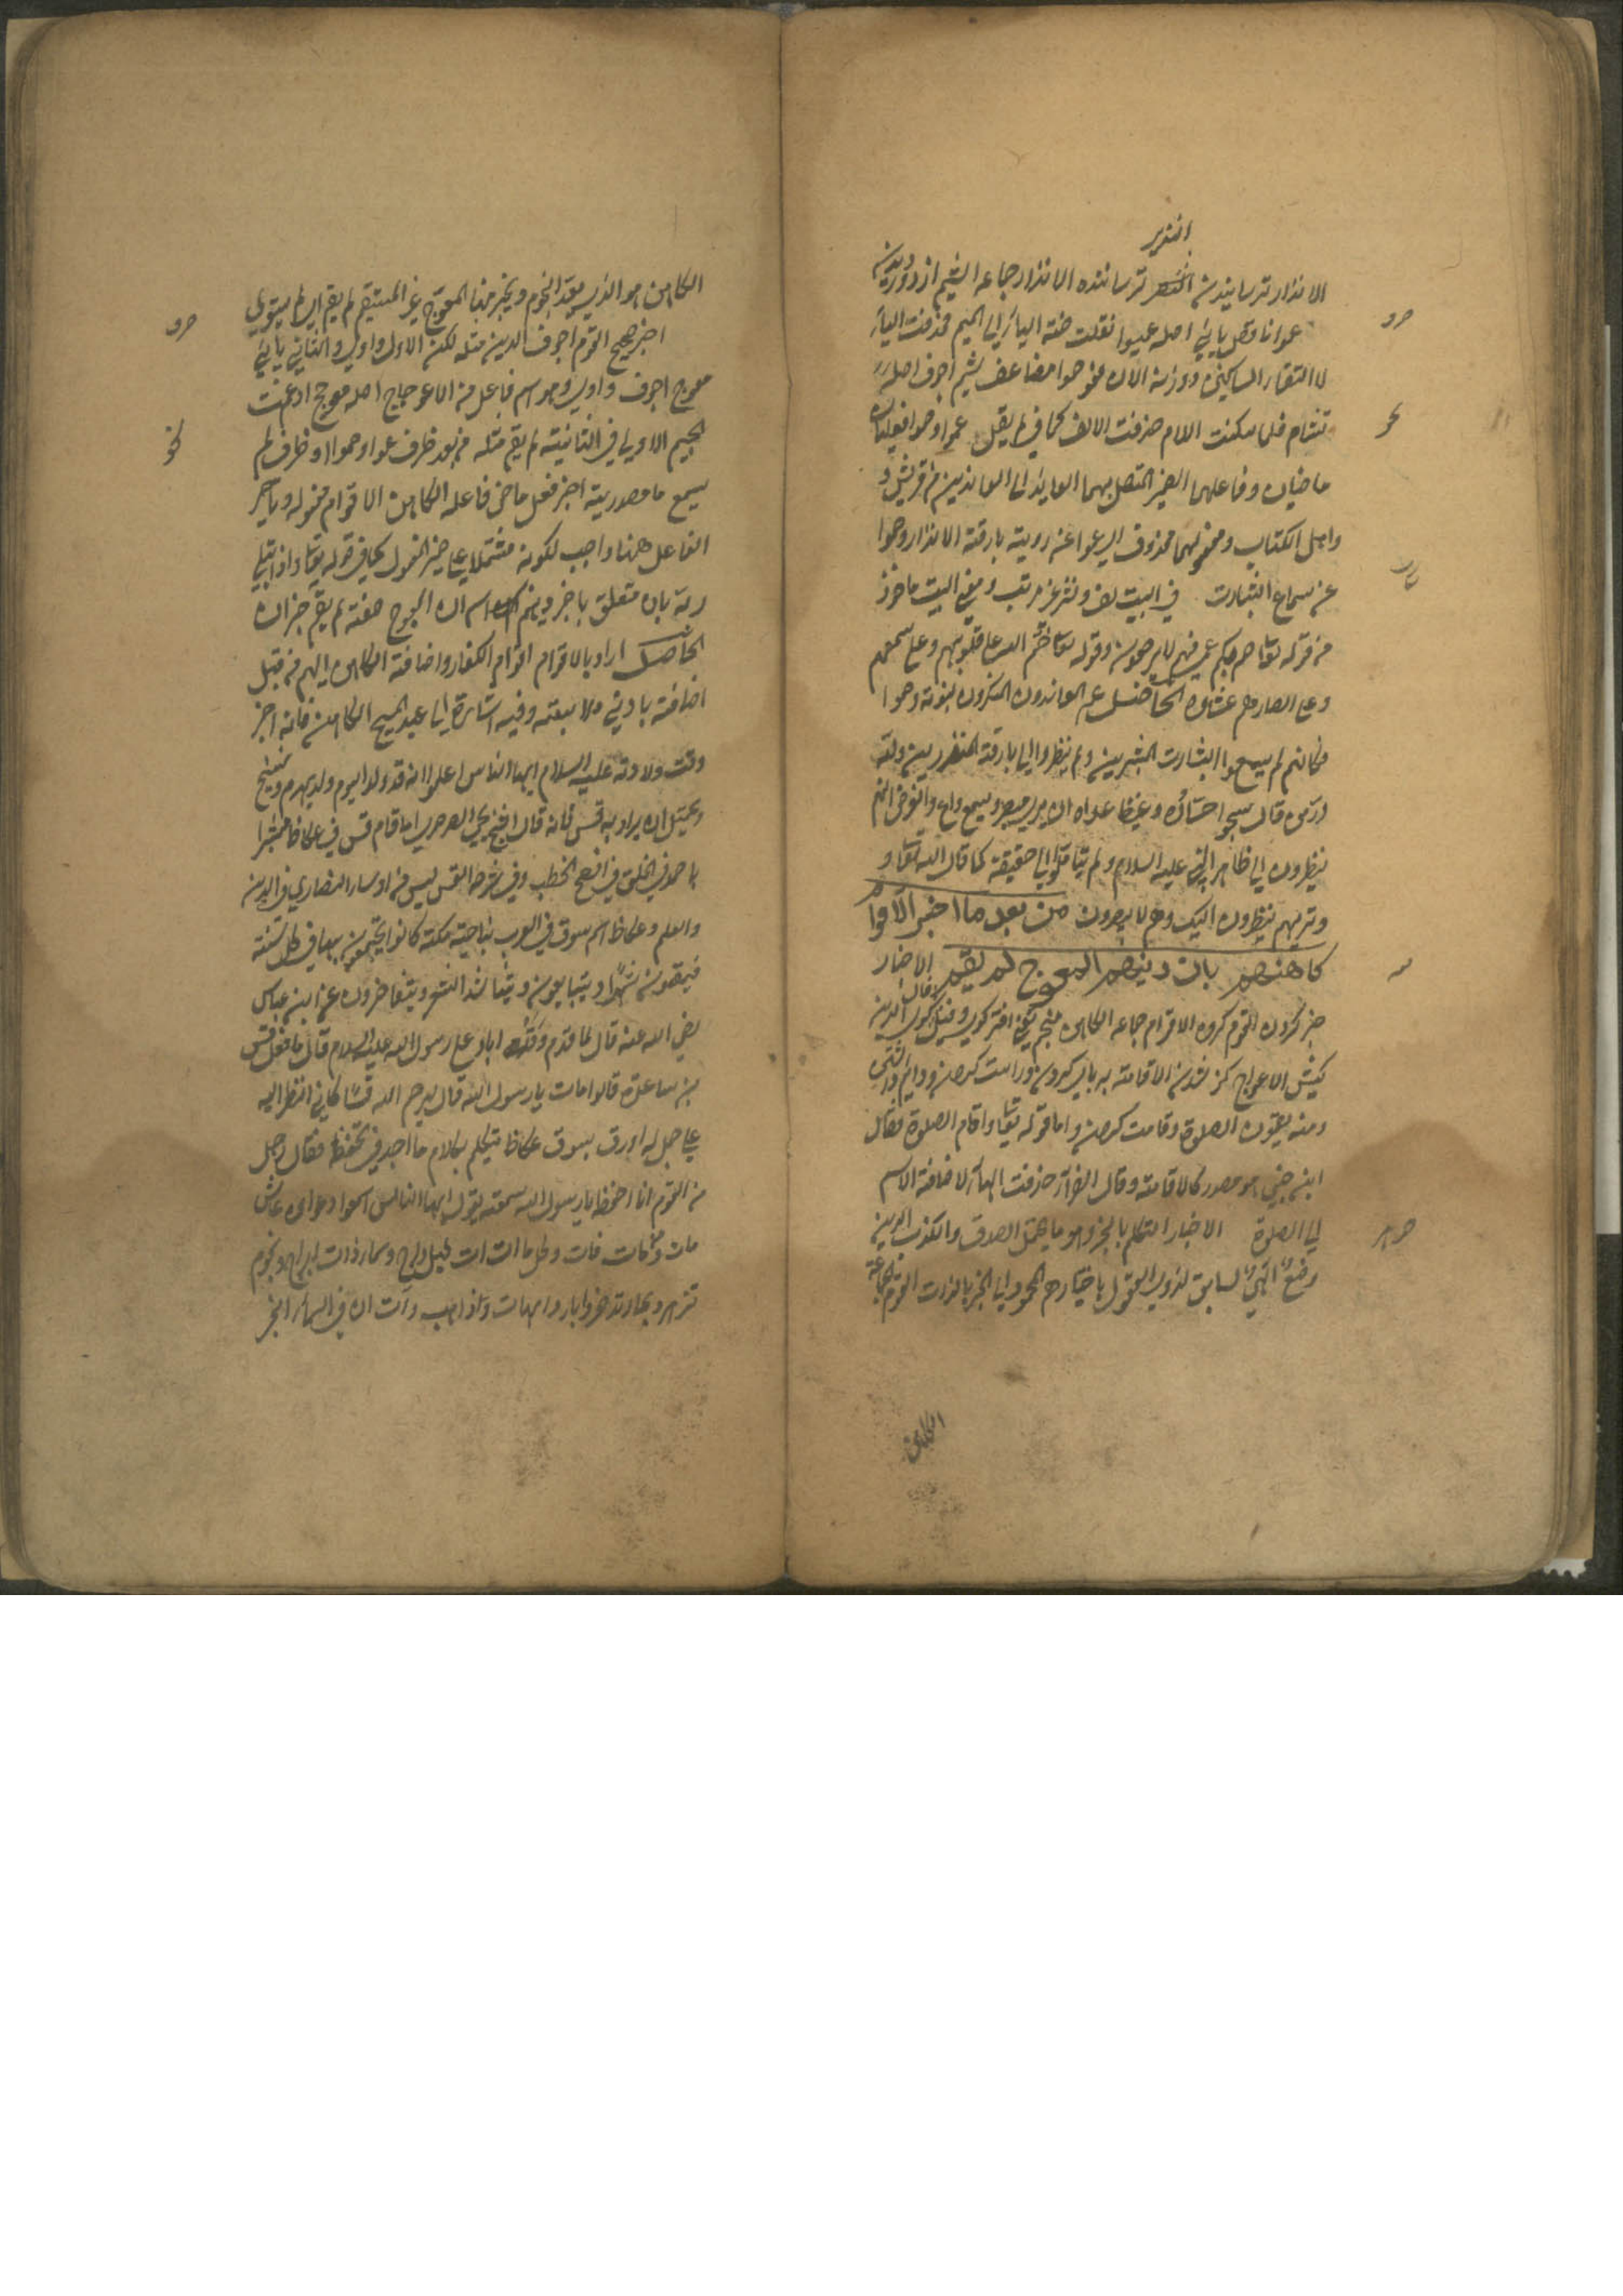 النذير
الانذار ترسانیدن ترساننده الانذار جماعه الشیم از دور دیدن
صرف
عموا ناقص یائي اصله عمیوا نقلت ضمة الیاء الی المیم فحذفت الیاء
لالتقاء الساکنین ووزنه الان فعوا صموا مضاعف یشم اجوف اصله
نحو
تشام فلما سکنت اللام حذفت الالف کما في لم یقل عموا وصموا فعلان
ماضیان وفاعلهما الضمیر المتصل بهما العاید الی المعاندین من قریش و
واهل الکتاب ومفعولهما محذوف اي عموا عن رویة بارقة الانذار وصموا
عن سماع البشارت في البیت لف ونشر غیر مرتب وفي البیت ماخوذ
من قوله تعالی صم بکم عمي فهم لا یرجعون وقوله تعالی ختم الله علی قلوبهم وعلی سمعهم
وعلی ابصارهم غشاوة الحاصل عم المعاندون المنکرون لنبوته وصموا
فکانهم لم یسمعوا البشارت المبشرین ولم ینظروا الی بارقة المنذرین ولله
در من قال شجو حساده وغیظ عداه ان یری مبصر ویسمع واع والغرض انهم
ینظرون الی ظاهر النبي علیه السلام ولم یتاملوا الی حقیقته کما قال الله تعالی و
وتریهم ینظرون الیک وهم لا یبصرون من بعد ما اخبر الاقوام
کاهنهم بان دینهم المعوج لم یقم الاخبار
خبر کردن القوم کروه الاقوام جماعه الکاهن منجم یعنی اختر کوی وفال کوی الدین
کیش الاعوجاج کژ شدن الاقامة بر پای کردن وراست کردن ودایم داشتن
ومنه یقیمون الصلوة وقامت کردن واما قوله تعالی واقام الصلوة فقال
ابن جني هو مصدر کالاقامة وقال الفراء حذفت الهاء لاضافة الاسم
الی الصلوة الاخبار التکلم بالخبر وهو ما یحتمل الصدق والکذب الدین
وضع الهي سابق لذوي العقول باختیارهم المحمود الی الخیر بالذات القوم الجماعة
الکاهن
الکاهن هو الذي یعد النجوم ویخبر عنها المعوج غیر المستقیم لم یقم اي لم یستوي
صرف
اخبر صحیح القوم اجوف الدین مثله لکن الاول واوي والثاني یائي
معوج اجوف واوي وهو اسم فاعل من الاعوجاج اصله معوجج ادغمت
نحو
الجیم الاولی في الثانیة لم یقم مثله من بعد ظرف عموا وصموا او ظرف لم
یسمع ما مصدریة اخبر فعل ماضي فاعله الکاهن الاقوام مفعوله وتاخیر
الفاعل ههنا واجب لکونه مشتملا علی ضمیر المفعول کما في قوله تعالی واذ ابتلی
ربه بان متعلق باخبر ودینهم اسم ان المعوج صفته لم یقم خبر ان
الحاصل اراد بالاقوام اقوام الکفار واضافة الکاهن الیهم من قبیل
اضافة بادنی ملابسة وفیه اشارة الی عبد المسیح الکاهن فانه اخبر
وقت ولادته علیه السلام ایها الناس اعلموا انه قد ولد الیوم ولد یهدم
ویحتمل ان یراد به قس فانه قال الشیخ یحیی الصرصري اما قام قس في عکاظ مبشرا
باحمد في الخلق في افصح الخطب وفي شرحه القس لیس من اوسار النصاری في الدین
والعلم وعکاظ اسم سوق في العرب بناحیة مکة کانوا یجتمعون بها في کل سنة
فیقیمون شهرا ویتبایعون ویتناشدون الشعر ویتفاخرون عن ابن عباس
رضي الله عنه قال لما قدم وفد ایاد علی رسول الله علیه السلام قال ما فعل قس
بن ساعدة قالوا مات یا رسول الله قال یرحم الله قسا کاني انظر الیه
علی جمل له اورق بسوق عکاظ یتکلم بکلام ما اجدني احفظه فقال رجل
من القوم انا احفظه یا رسول الله سمعته یقول ایها الناس اسمعوا وعوا من عاش
مات ومن مات فات وکل ما ات ات لیل داج وسماء ذات ابراج ونجوم
تزهر وبحار تذخر واباء وامهات وذاهب وات ان في السماء لخبر